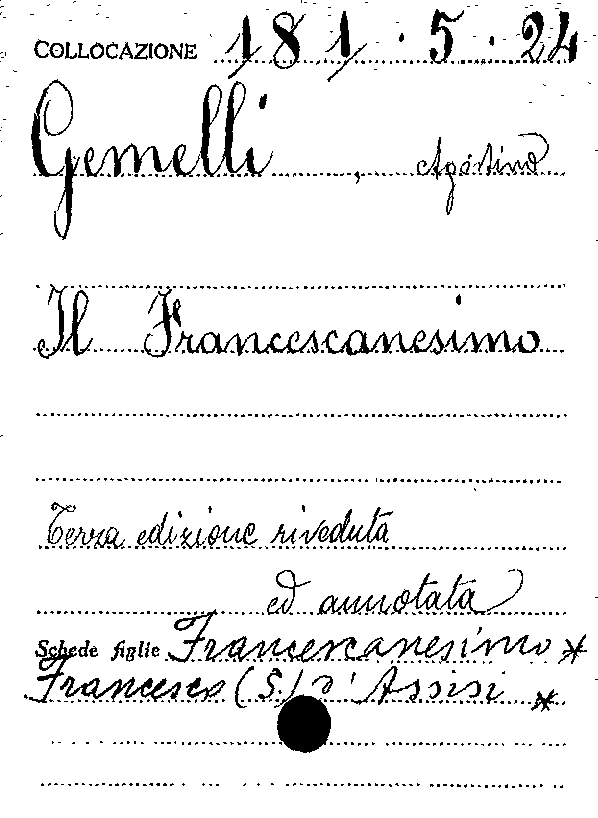 COLLOCAZIONE 181 · 5 · 24
Gemelli, Agostino
Il Francescanesimo
Terza edizione riveduta
ed annotata
Schede figlie Francescanesimo *
Francesco (S.) d'Assisi *